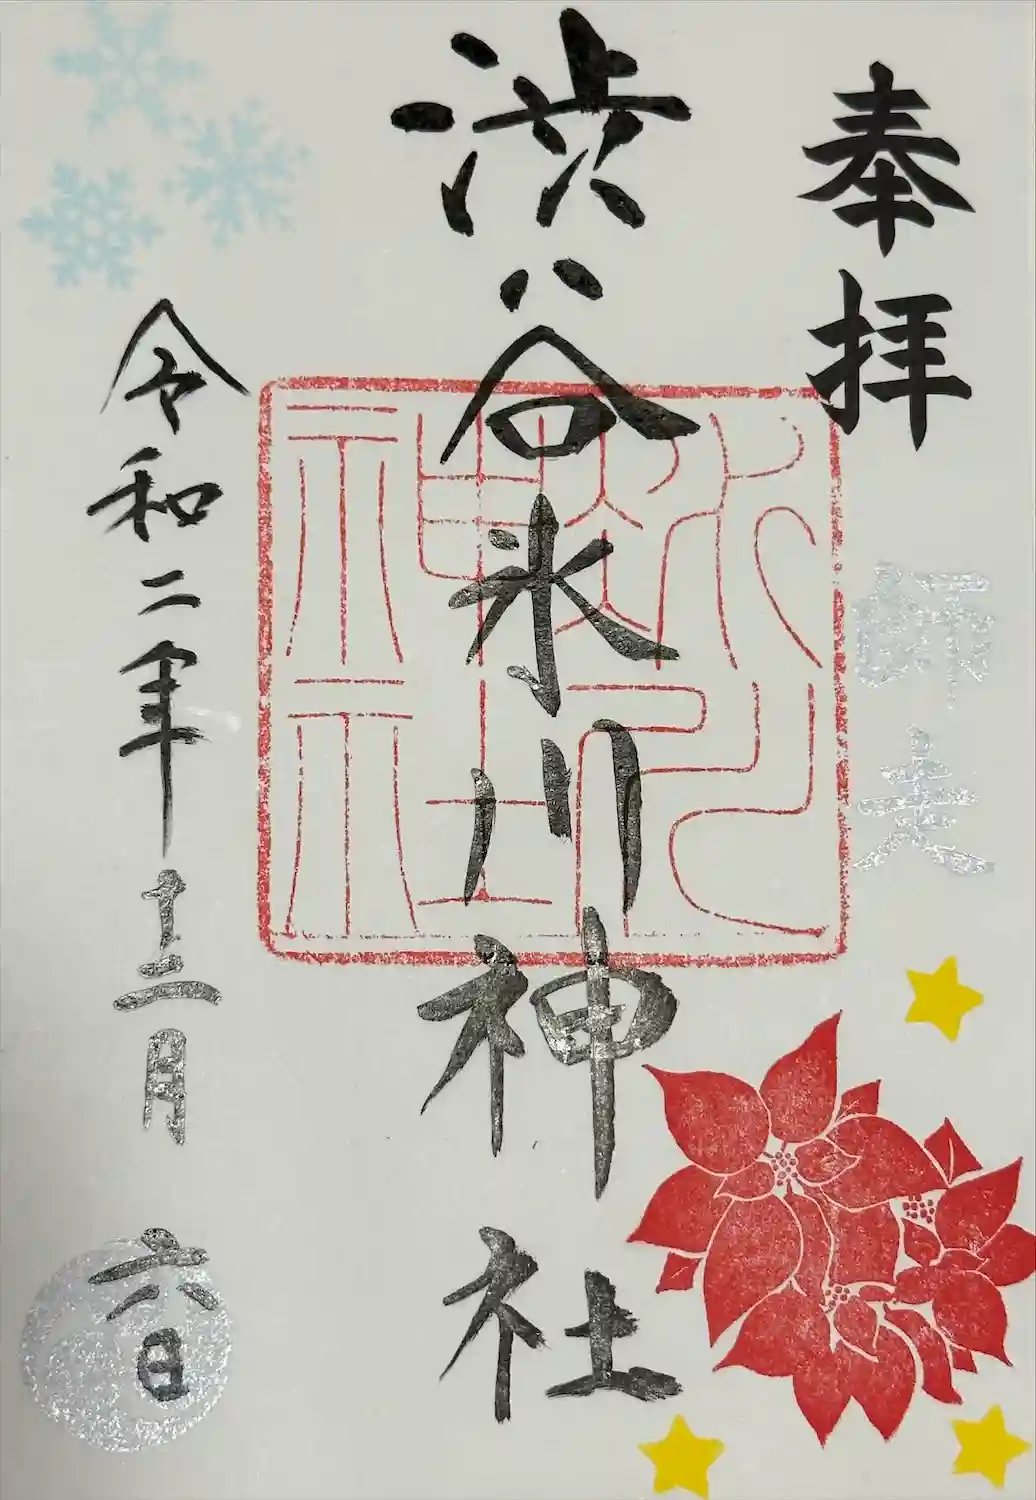 奉拝
師走
渋谷氷川神社
氷川神社
令和二年十二月六日